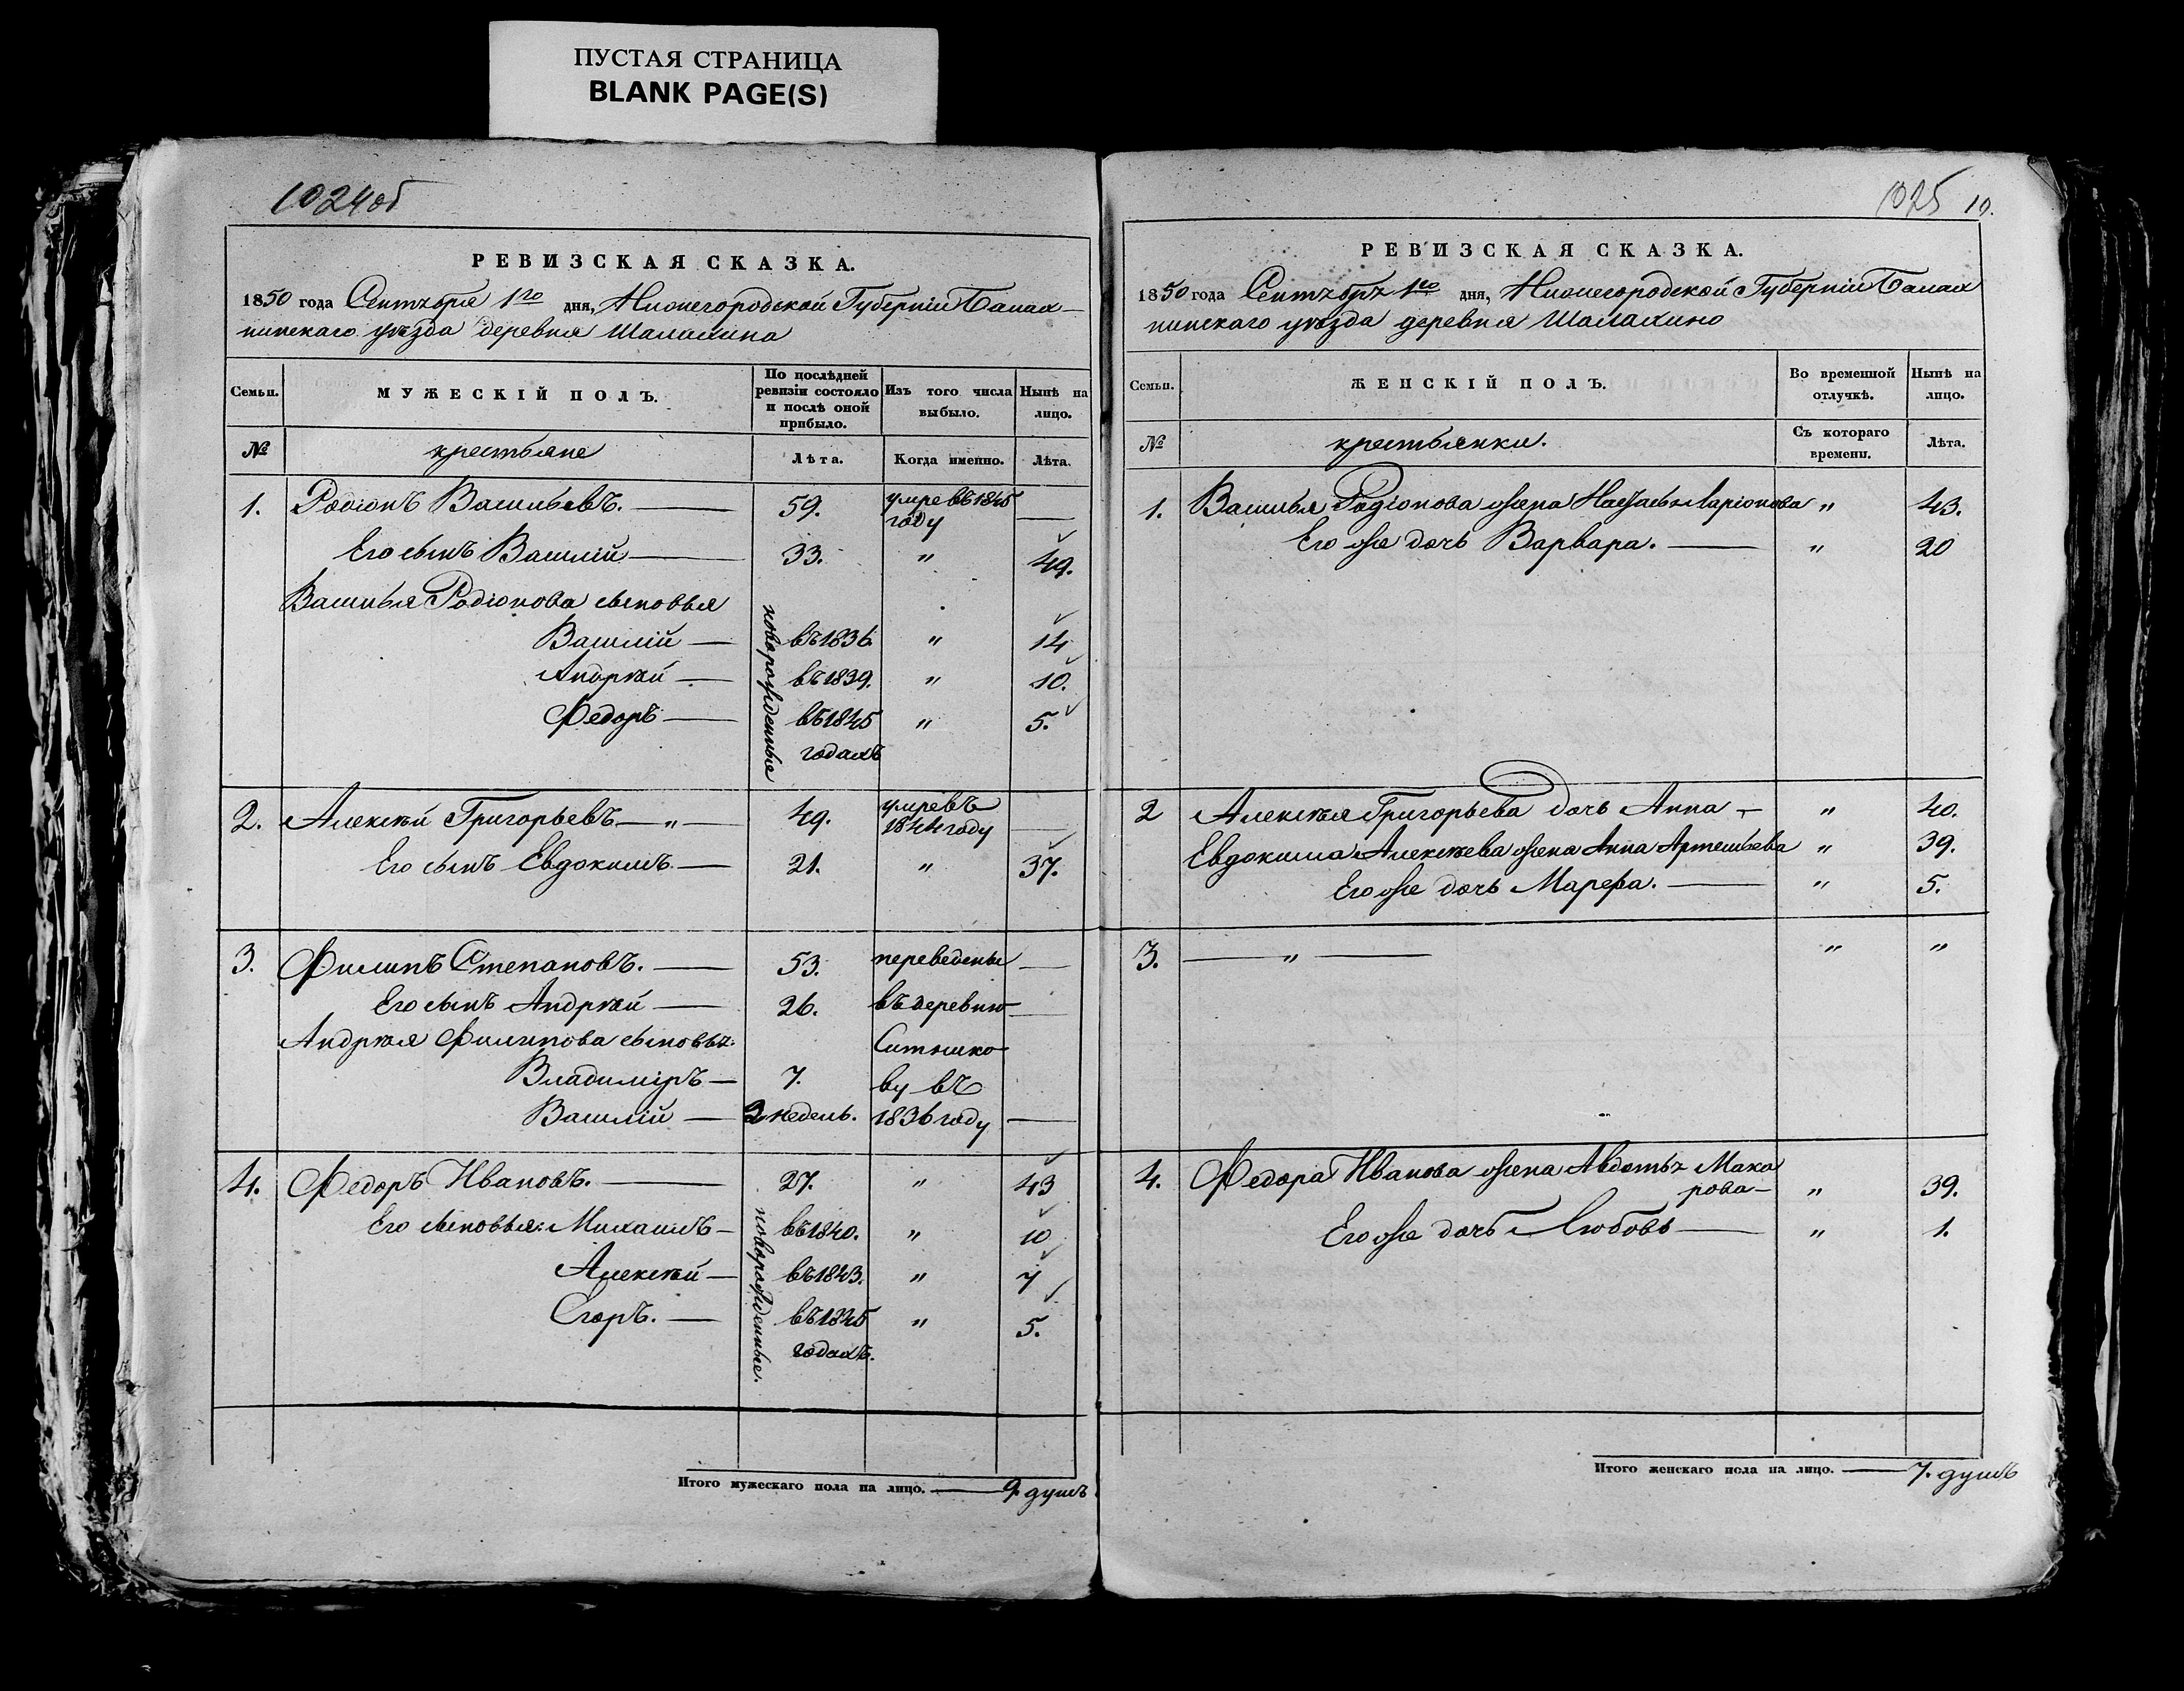 ПУСТАЯ СТРАНИЦА
BLANK PAGE(S)
1024об
РЕВИЗСКАЯ СКАЗКА.
1850 года Сентября 1го дня, Нижегородской Губерніи Балах-
нинскаго уѣзда деревня Шалахина
Семьи. МУЖЕСКІЙ ПОЛЪ. По послѣдней ревизіи состояло и послѣ оной прибыло. Изъ того числа выбыло. Нынѣ на лицо.
№ крестьяне Лѣта. Когда именно. Лѣта.
1. Родіонъ Васильевъ. — 59. умре въ 1845 году —
Его сынъ Василій — 33. " 49.
Василья Родіонова сыновья
новорожденные
Василій — въ 1836 " 14
Андрѣй — въ 1839. " 10.
Федоръ — въ 1845 " 5.
годахъ
2. Алексѣй Григорьевъ — " — 49. умре въ 1844 году —
Его сынъ Евдокимъ — 21. " 37.
3. Филипъ Степановъ. — 53. переведены —
Его сынъ Андрѣй — 26. въ деревню —
Андрѣя Филипова сыновья: Ситнико-
Владиміръ — 7. ву въ
Василій — 2 недель. 1836 году —
4. Федоръ Ивановъ. — 27. " 43
Его сыновья: Михаилъ — въ 1840. " 10
новорожденные.
Алексѣй — въ 1843. " 7
Егоръ. — въ 1845 " 5.
годахъ.
Итого мужескаго пола на лицо. — 9. душъ
1025 10.
РЕВИЗСКАЯ СКАЗКА.
1850 года Сентября 1го дня, Нижегородской Губерніи Балах
нинскаго уѣзда деревня Шалахино
Семьи. ЖЕНСКІЙ ПОЛЪ. Во временной отлучкѣ. Нынѣ на лицо.
№ крестьянки. Съ котораго времени. Лѣта.
1. Василья Родіонова жена Настасья Ларіонова " 43.
Его же дочь Варвара. — " 20
2 Алексѣя Григорьева дочь Анна — " 40.
Евдокима Алексѣева жена Анна Артемьева " 39.
Его же дочь Марефа. — " 5.
3. — " — " "
4. Федора Иванова жена Авдотья Мака
рова — " 39.
Его же дочь Любовь — " 1.
Итого женскаго пола на лицо. — 7. душъ